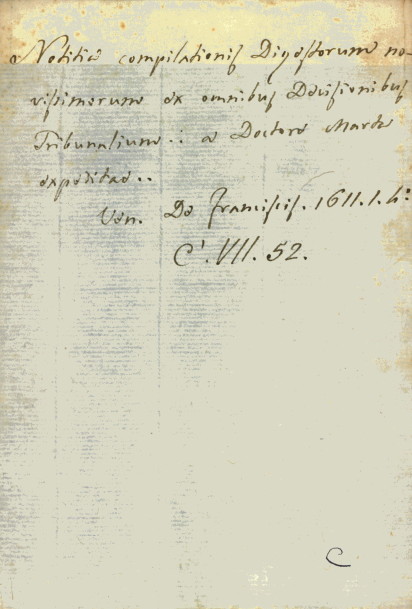 Notitia compilationis Digestorum no-
vissimorum ex omnibus Decisionibus
Tribunalium .. a Doctore Marta
expeditae ..
Ven. De Franciscis. 1611. 1. h:
C'. VII. 52.
C